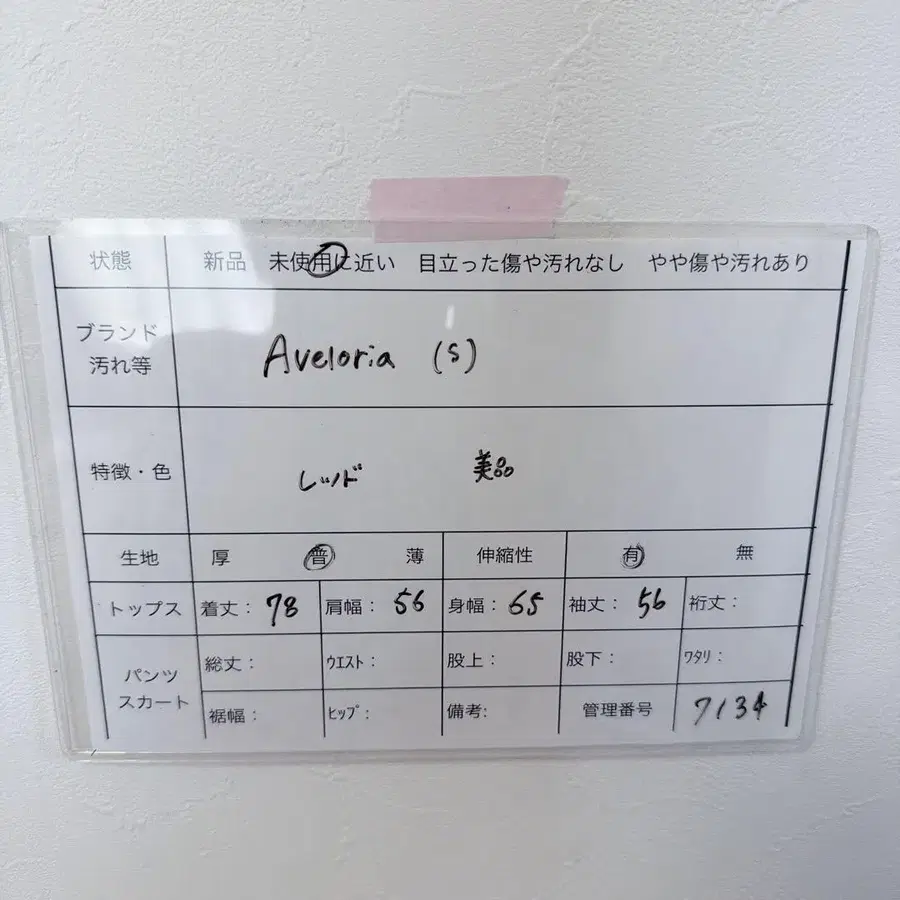 状態 新品 未使用に近い 目立った傷や汚れなし やや傷や汚れあり
ブランド
汚れ等
Aveloria (S)
特徴・色 レッド 美品
生地 厚 普 薄 伸縮性 有 無
トップス 着丈: 78 肩幅: 56 身幅: 65 袖丈: 56 裄丈:
パンツ
スカート
総丈: ウエスト: 股上: 股下: ワタリ:
裾幅: ヒップ: 備考: 管理番号 7134